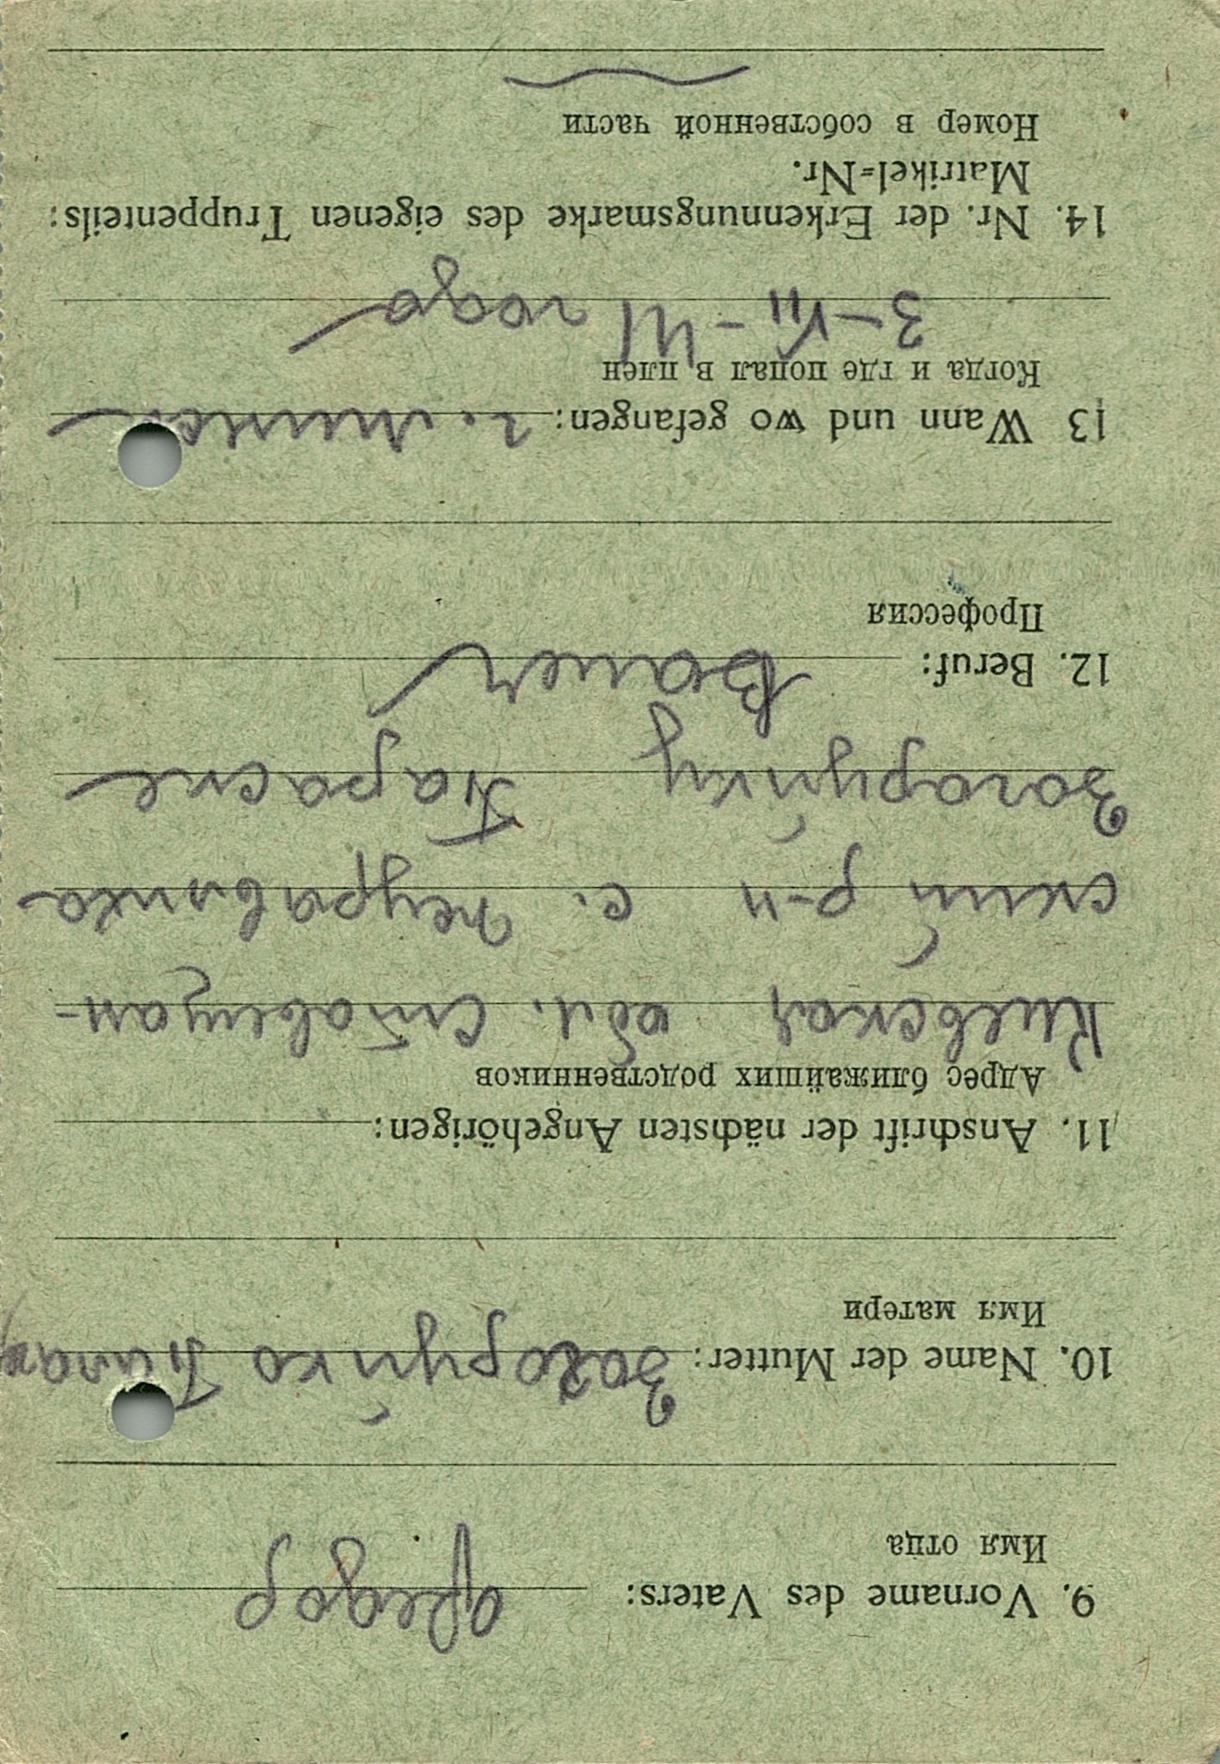 9. Vorname des Vaters: Федор
Имя отца
10. Name der Mutter: Загоруйко
Имя матери
11. Anschrift der nächsten Angehörigen:
Адрес ближайших родственников
Киевская обл. Ставищан-
ский р-н с. Журавлиха
Загоруйку Параске
12. Beruf:
Профессия
13 Wann und wo gefangen: г. Минск
Когда и где попал в плен
3-VII-41 года
14. Nr. der Erkennungsmarke des eigenen Truppenteils:
Matrikel=Nr.
Номер в собственной части